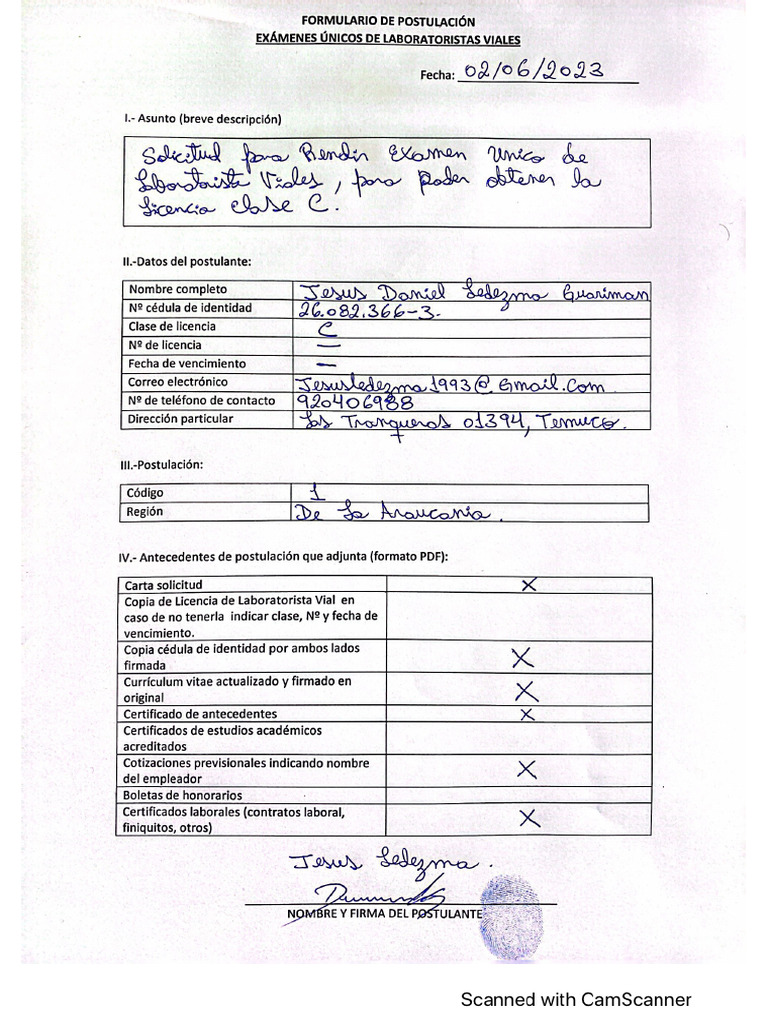 FORMULARIO DE POSTULACIÓN
EXÁMENES ÚNICOS DE LABORATORISTAS VIALES
Fecha: 02/06/2023
I.- Asunto (breve descripción)
Solicitud para Rendir Examen Unico de
Laboratorista Viales, para Poder obtener la
Licencia clase C.
II.-Datos del postulante:
Nombre completo Jesus Daniel Ledezma Guariman
Nº cédula de identidad 26.082.366-3.
Clase de licencia C
Nº de licencia —
Fecha de vencimiento —
Correo electrónico Jesusledezma1993@Gmail.com
Nº de teléfono de contacto 920406988
Dirección particular Las Tranqueras 01394, Temuco.
III.-Postulación:
Código 1
Región De La Araucania.
IV.- Antecedentes de postulación que adjunta (formato PDF):
Carta solicitud X
Copia de Licencia de Laboratorista Vial en
caso de no tenerla indicar clase, Nº y fecha de
vencimiento.
Copia cédula de identidad por ambos lados
firmada X
Currículum vitae actualizado y firmado en
original X
Certificado de antecedentes X
Certificados de estudios académicos
acreditados
Cotizaciones previsionales indicando nombre
del empleador X
Boletas de honorarios
Certificados laborales (contratos laboral,
finiquitos, otros) X
Jesus Ledezma.
NOMBRE Y FIRMA DEL POSTULANTE
Scanned with CamScanner